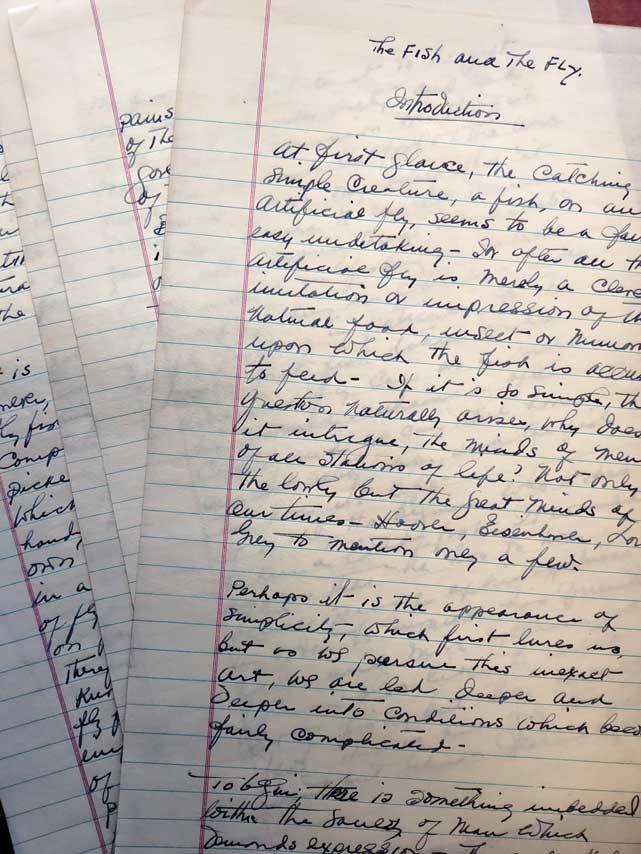 The Fish and The Fly.
Introduction
At first glance, the catching
simple creature, a fish, on an
artificial fly, seems to be a fair
easy undertaking - for after all th
artificial fly is merely a clever
imitation or impression of th
natural food, insect or minnow
upon which the fish is accus
to feed - If it is so simple, th
question naturally arises, why does
it intrigue, the minds of men
of all stations of life? Not only
the lowly but the great minds of
our times - Hoover, Eisenhower, Lor
Grey to mention only a few.
Perhaps it is the appearance of
simplicity, which first lures us,
but as we pursue this inexact
art, we are led deeper and
deeper into conditions which beco
fairly complicated -
To begin, there is something imbedded
within the of man which
demands expression
pains
of the
of
is
Comp
picke
which
hand
own
in a
of fly
on
There
fly
of